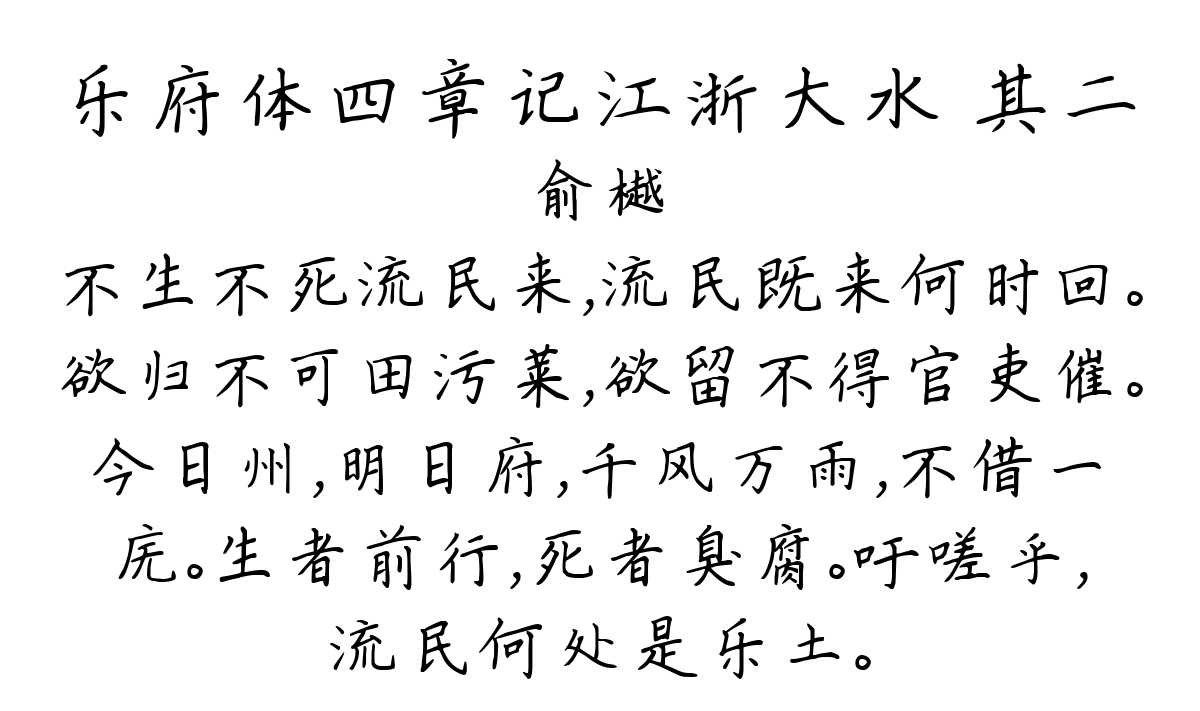 乐府体四章记江浙大水 其二
俞樾
不生不死流民来,流民既来何时回。
欲归不可田污莱,欲留不得官吏催。
今日州,明日府,千风万雨,不借一
庑。生者前行,死者臭腐。吁嗟乎,
流民何处是乐土。